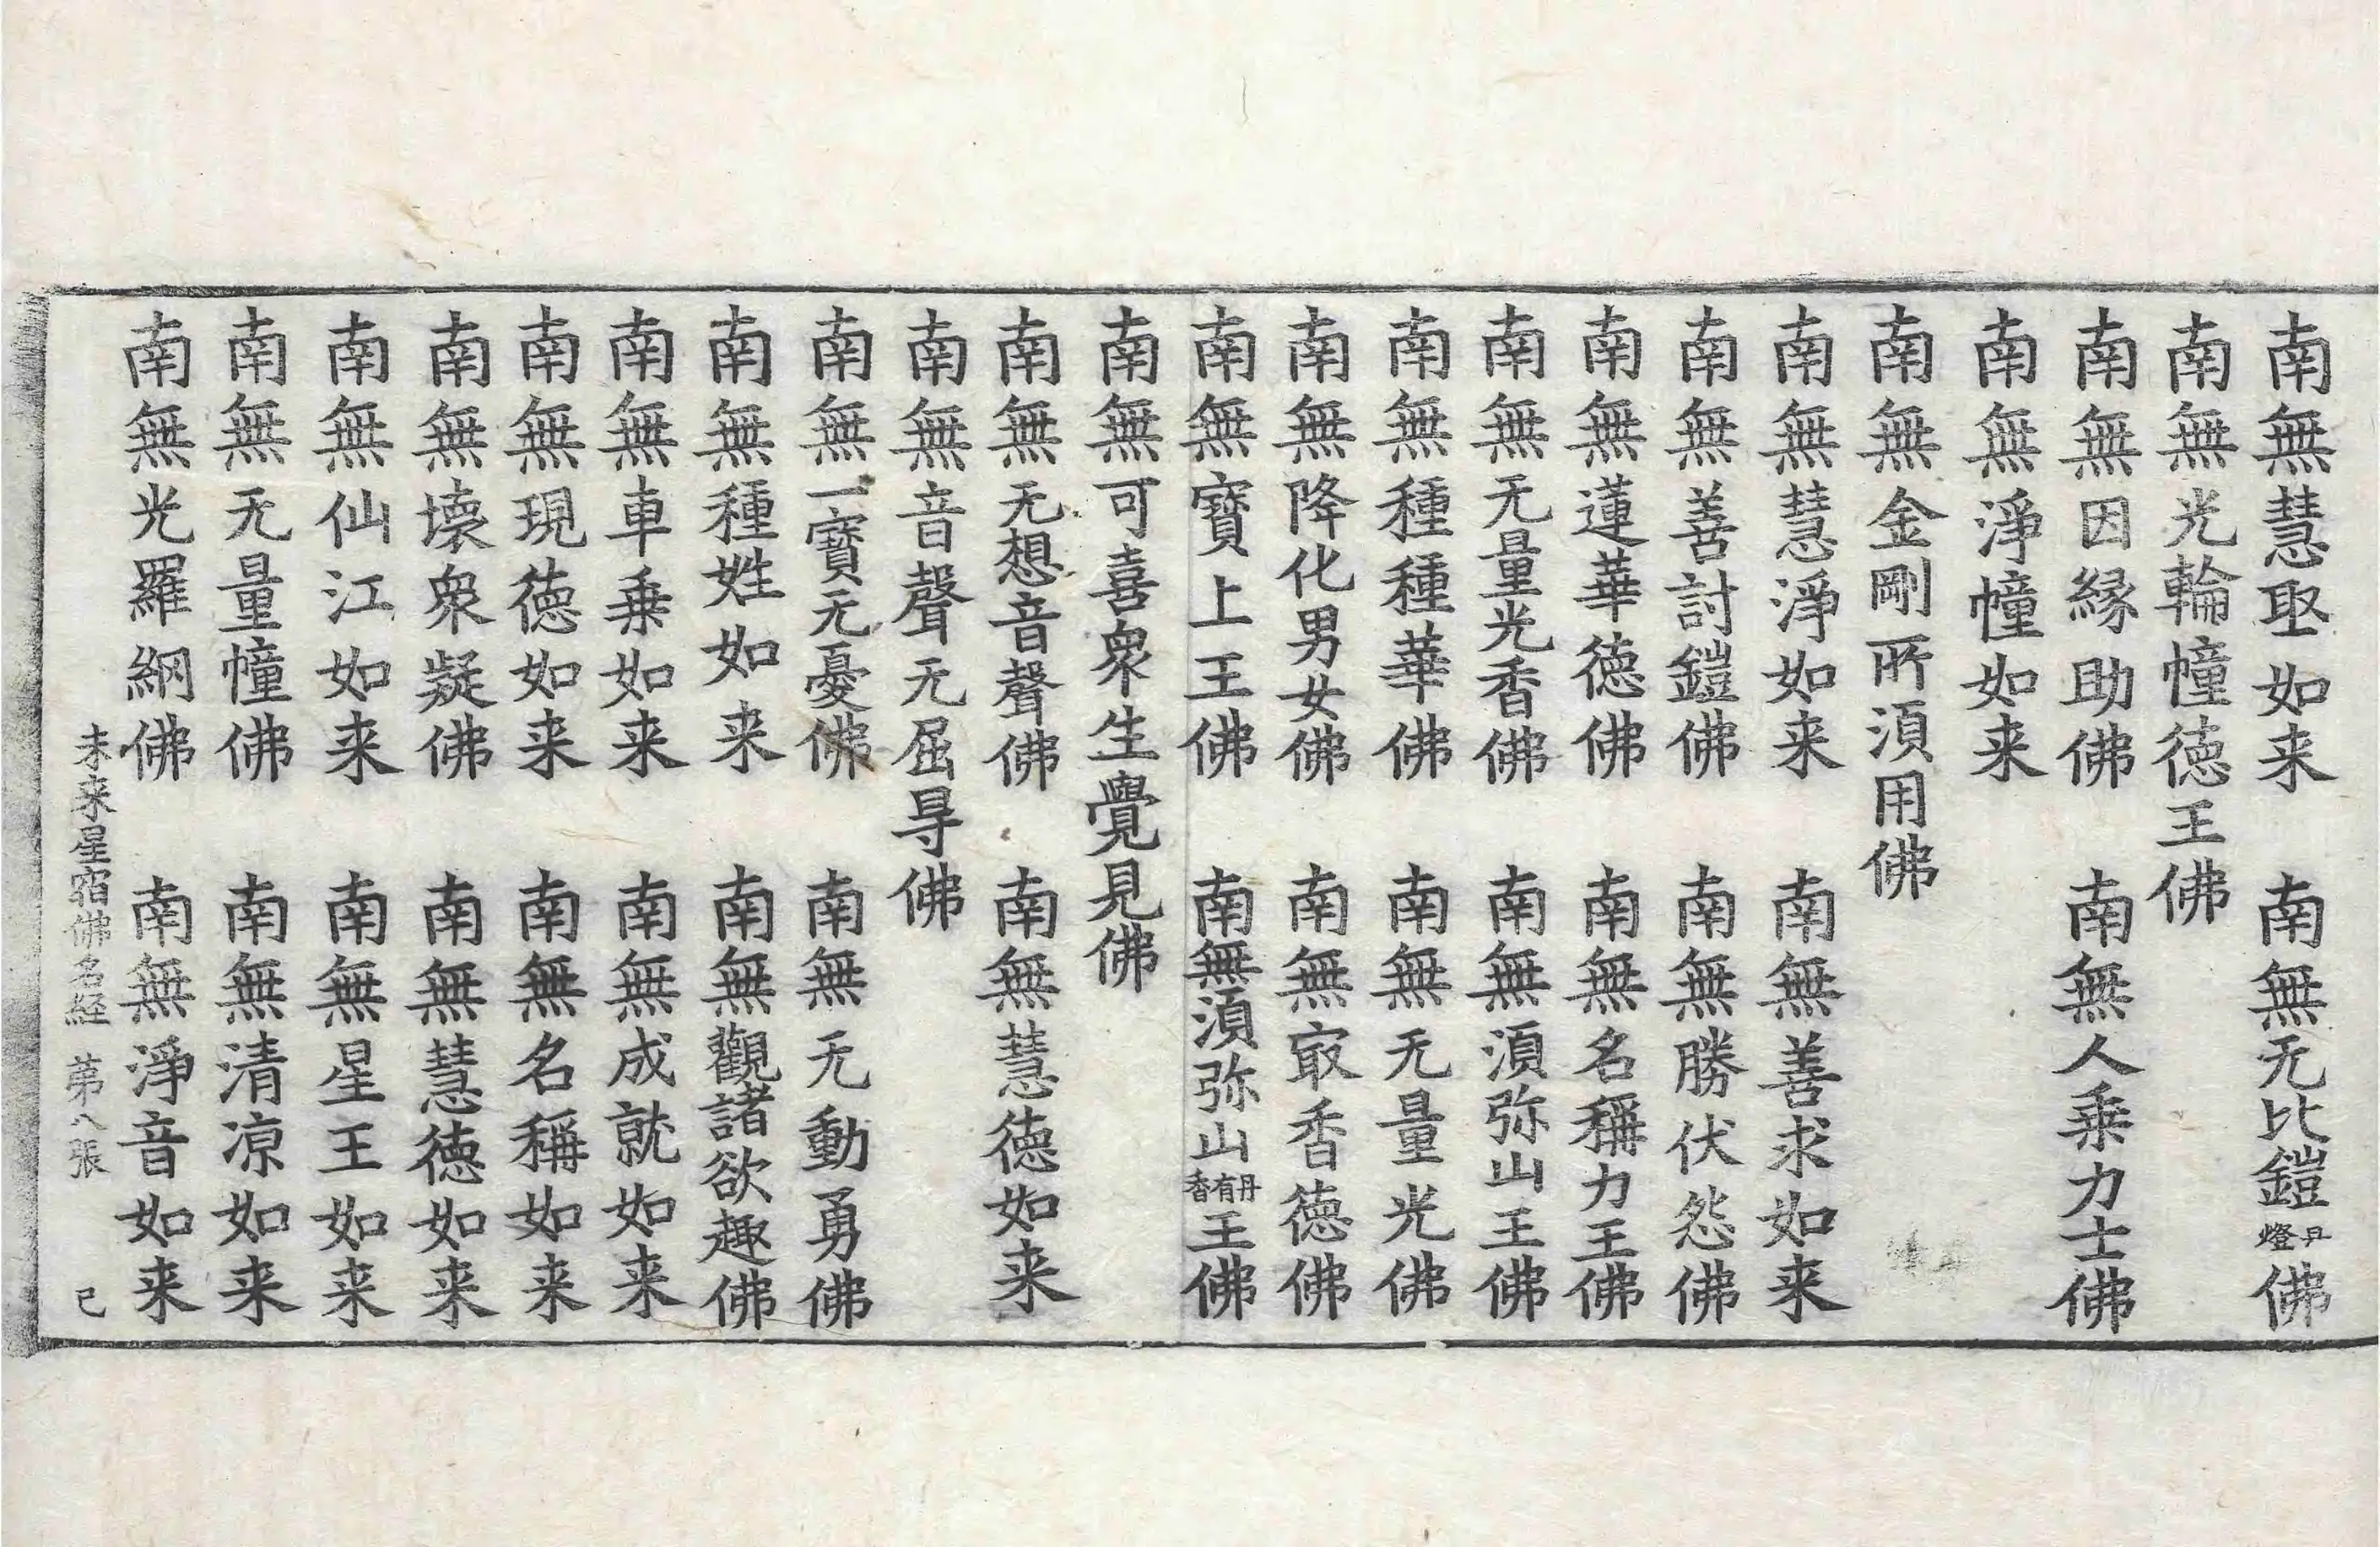 南無慧聚如来　南無无比鎧丹燈佛
南無光輪幢德王佛
南無因縁助佛　南無人乗力士佛
南無淨幢如来
南無金剛所須用佛
南無慧淨如来　南無善求如来
南無善討鎧佛　南無勝伏怨佛
南無蓮華德佛　南無名稱力王佛
南無无量光香佛　南無須弥山王佛
南無種種華佛　南無无量光佛
南無降化男女佛　南無㝡香德佛
南無寶上王佛　南無須弥山丹有香王佛
南無可喜衆生覺見佛
南無无想音聲佛　南無慧德如来
南無音聲无屈㝵佛
南無一寶无憂佛　南無无動勇佛
南無種姓如来　南無觀諸欲趣佛
南無車乗如来　南無成就如来
南無現德如来　南無名稱如来
南無壞衆疑佛　南無慧德如来
南無仙江如来　南無星王如来
南無无量幢佛　南無清凉如来
南無光羅網佛　南無淨音如来
未来星宿佛名経　苐八張　己